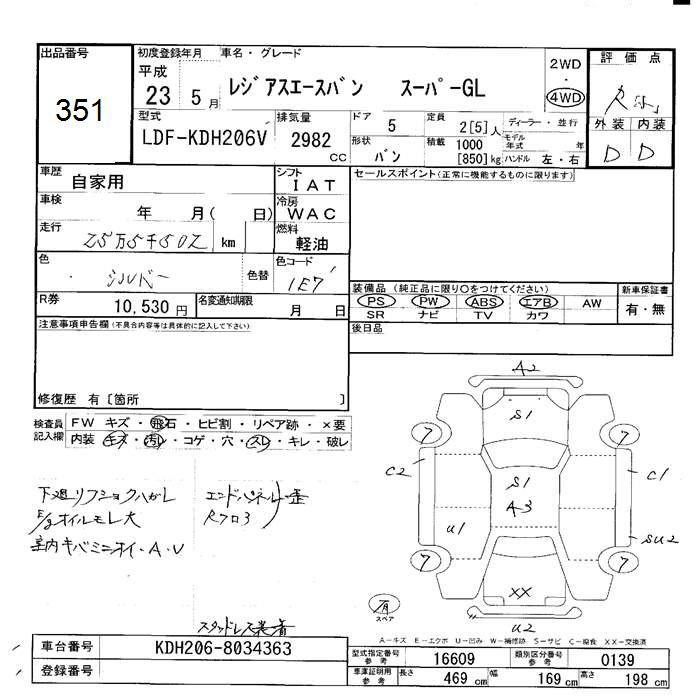 出品番号
351
初度登録年月
平成
23 5月
車名・グレード
レジアスエースバン スーパーGL
2WD
・
4WD
評価点
外装 内装
D D
型式
LDF-KDH206V
排気量
2982
cc
ドア
5
形状
バン
定員
2[5]人
積載
1000
[850]kg
ディーラー・並行
モデル
年式 年
ハンドル 左・右
車歴
自家用
シフト
IAT
冷房
WAC
燃料
軽油
車検
年 月( 日)
走行
25万5千502 km
色
シルバー
色替
色コード
1E7
R券
10,530円
名変通知期限
月 日
セールスポイント(正常に機能するものに限ります)
装備品(純正品に限り○をつけてください)
PS PW ABS エアB AW
SR ナビ TV カワ
新車保証書
有・無
後日品
注意事項申告欄(不具合内容等は具体的に記入して下さい)
修復歴 有〔箇所 〕
検査員
記入欄
FW キズ・飛石・ヒビ割・リペア跡・×要
内装 キズ・汚レ・コゲ・穴・スレ・キレ・破レ
下廻リ
E/gオイルモレ大
室内キバミニオイ・A・V
エンドパネル歪
Rフロ3
スタッドレス装着
A2
S1
7 7
C2 C1
S1
A3
U1
SU2
7 7
XX
U2
有
スペア
A-キズ E-エクボ U-凹み W-補修跡 S-サビ C-腐食 XX-交換済
車台番号
KDH206-8034363
登録番号
型式指定番号
参考
16609
類別区分番号
参考
0139
車庫証明用
参考
長さ
469 cm
幅
169 cm
高さ
198 cm